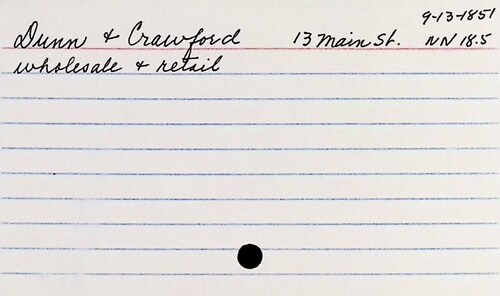 9-13-1851
Dunn & Crawford 13 Main St. NN 18.5
wholesale & retail